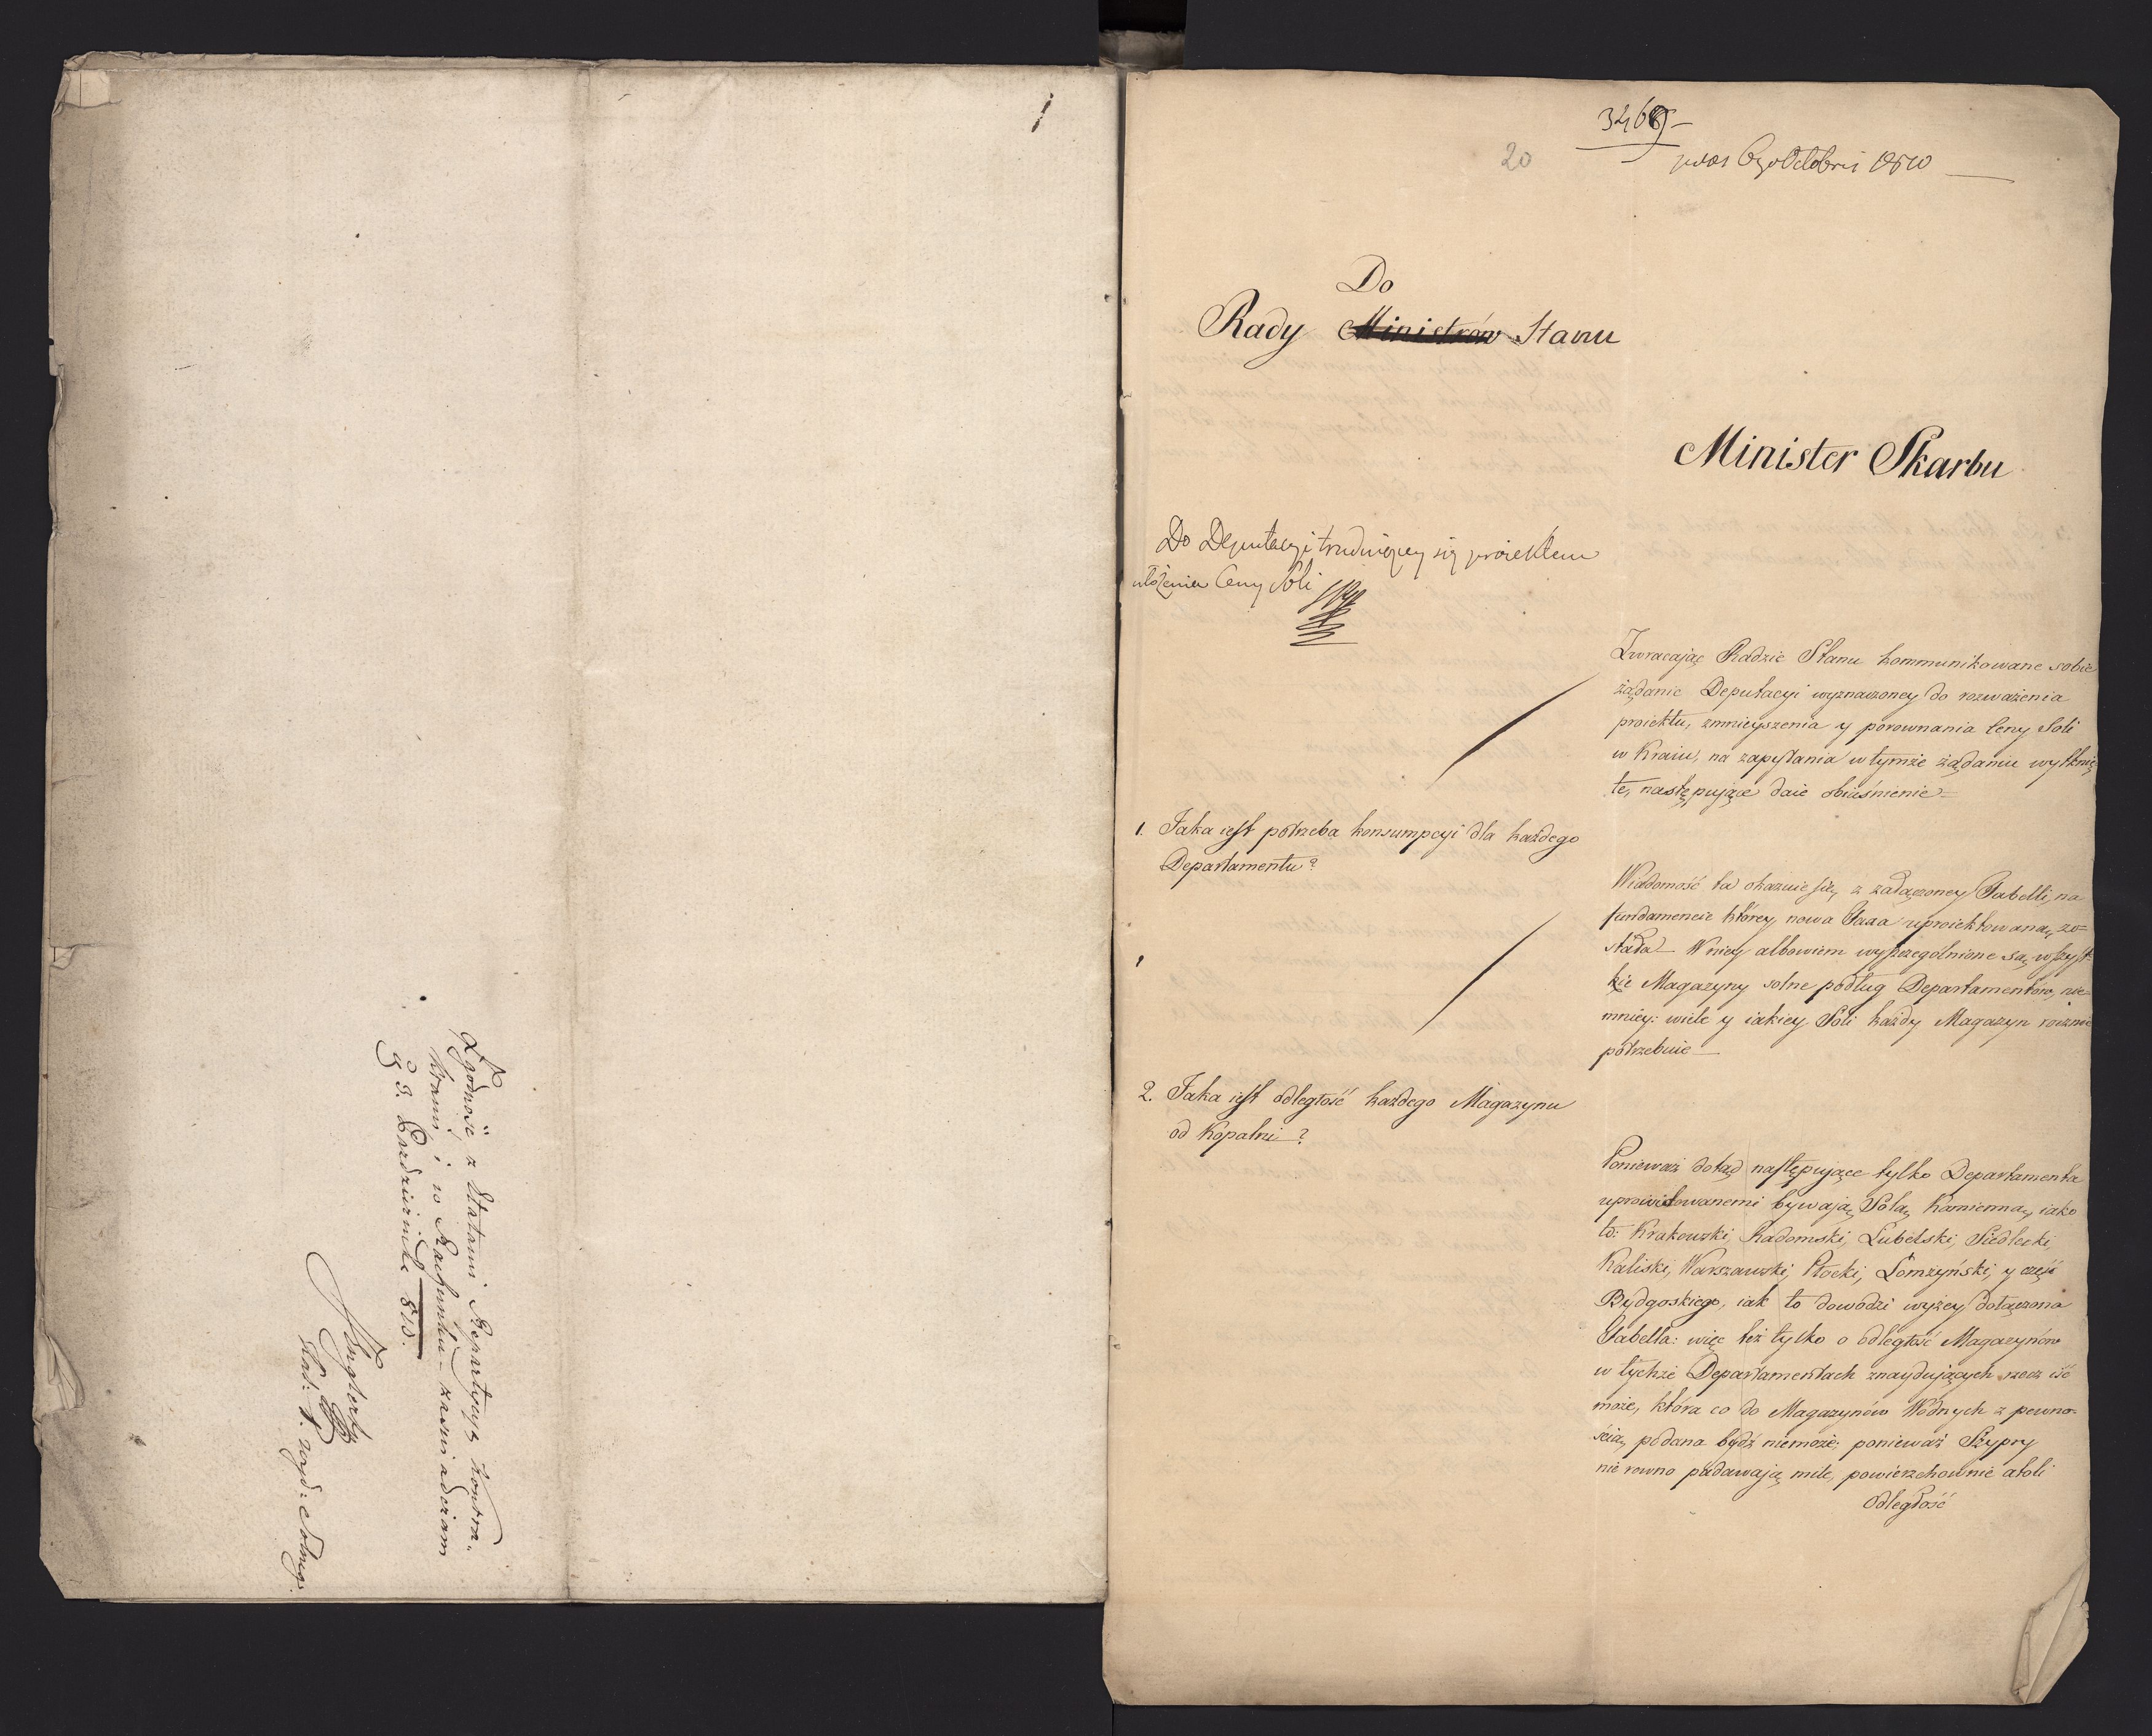 1
Zgodność z Etatami Repartycyą kontra-
ktami, i w Rachunku
G 3. Października 810.
3468
20
pres Octobris 1810
Do
Rady Ministrów Stanu
Minister Skarbu
Do Deputacyi trudniącey się proiektem
ułożenia Ceny Soli
Zwracając Radzie Stanu kommunikowane sobie
żądanie Deputacyi wyznaczoney do rozważenia
proiektu, zmnieyszenia y porownania Ceny Soli
w Kraiu, na zapytania w tymże żądaniu wytknię
te, następujące daie obiaśnienie=
1. Jaka iest potrzeba konsumpcyi dla każdego
Departamentu?
Wiadomość ta okazuie się, z załączoney Tabelli, na
fundamencie którey nowa Taxa uproiektowaną zo=
stała_ W niey albowiem wyszczególnione są, wszyst=
kie Magazyny solne podług Departamentów, nie=
mniey: wiele y iakiey Soli każdy Magazyn rocznie
potrzebuie_
2. Jaka iest odległość każdego Magazynu
od Kopalni?
Ponieważ dotąd następujące tylko Departamenta
uprowidowanemi bywaią, Solą, Kamienną, iako
to: Krakowski, Radomski, Lubelski, Siedlecki,
Kaliski, Warszawski, Płocki, Łomżyński, y część
Bydgoskiego, iak to dowodzi wyżey dołączona
Tabella: więc też tylko o odległość Magazynów
w tychże Departamentach znayduiących rzecz iść
może, która co do Magazynów Wodnych z pewno-
ścią, podana bydź niemoże: ponieważ Szypry
nie rowno podawają mile, powierzchownie atoli
odległość